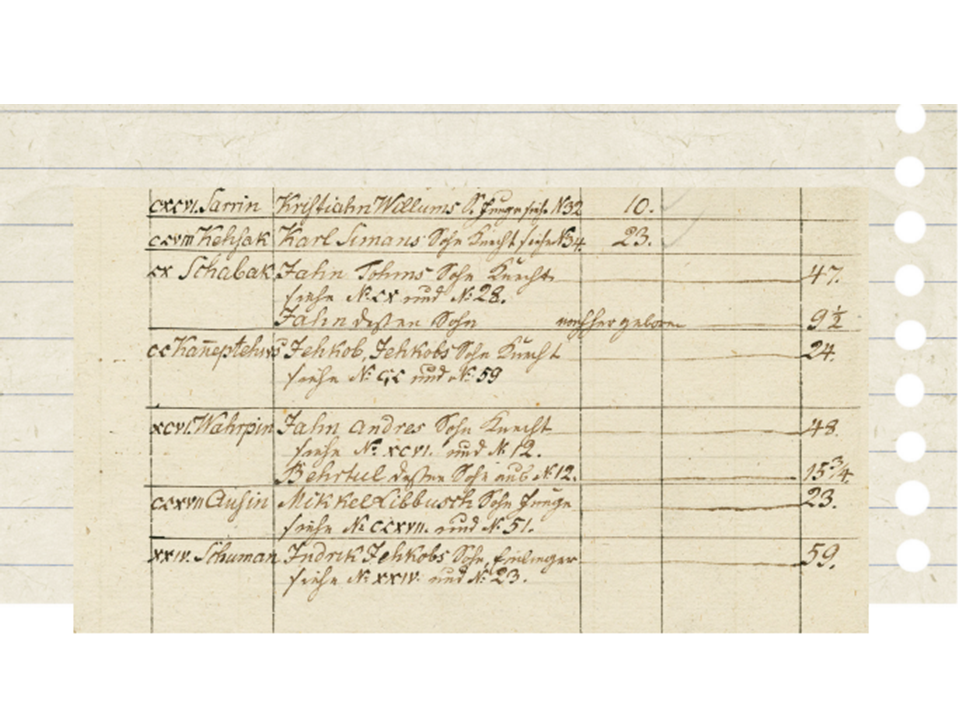 cxcvi. Sarrin Kristiahn Willums S. Junge siehe N32 10.
ccviii Kehsak Karl Simans Sohn Knecht siehe N34. 23.
cx Schabak Jahn Tohms Sohn Knecht 47.
siehe N: cx und N: 28.
Jahn dessen Sohn vorher geboren 9½
cc Kan̄eptehns Jehkob, Jehkobs Sohn Knecht 24.
siehe N: cc und N: 59
xcvi. Wahrpin Jahn Andres Sohn Knecht 48.
siehe No xcvi. und N 12.
Behrtul dessen Sohn aus N 12. 15¾.
ccxvii Ausin Mikkel Libbusch Sohn Junge 23.
siehe No ccxvii. und N: 51.
xxiv. Schuman Indrik Jehkobs Sohn, 59.
siehe No xxiv. und N: 23.